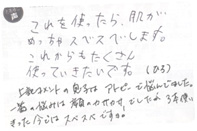 これを使ったら、肌が
めっちゃスベスベします。
これからもたくさん
使っていきたいです。(ひろ)
上記コメントの息子はアトピーで悩んでました。
一番の悩みは顔のカサカサでしたが3年使い
きった今ではスベスベですヨ。